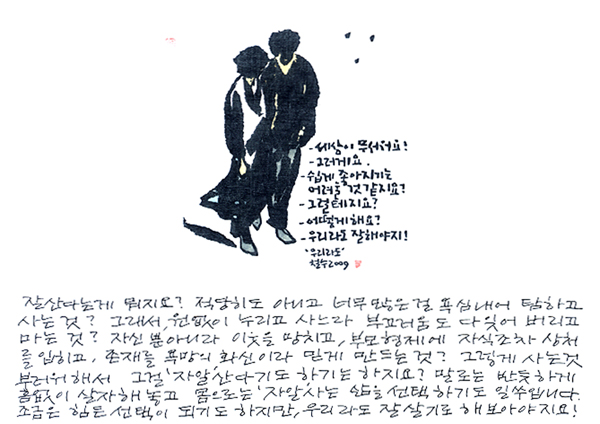 -세상이 무서워요!
-그러게요.
-쉽게 좋아지기는
어려울 것 같지요?
-그럴테지요?
-어떻게해요?
-우리라도 잘해야지!
'우리라도'
철수2009
잘산다는게 뭐지요? 적당히도 아니고 너무많은걸 욕심내어 탐하고
사는 것? 그래서, 원없이 누리고 사느라 부끄러움도 다 잊어 버리고
마는 것? 자신 뿐아니라 이웃을 망치고, 부모형제에 자식조차 상처
를 입히고, 존재를 욕망의 화신이라 믿게 만드는 것? 그렇게 사는것
부러워해서 그걸 '자알' 산다기도 하기는 하지요? 말로는 반듯하게
흠없이 살자해 놓고 몸으로는 '자알' 사는 삶을 선택하기도 일쑤입니다.
조금은 힘든 선택이 되기도 하지만, 우리라도 잘 살기로 해보아야지요!